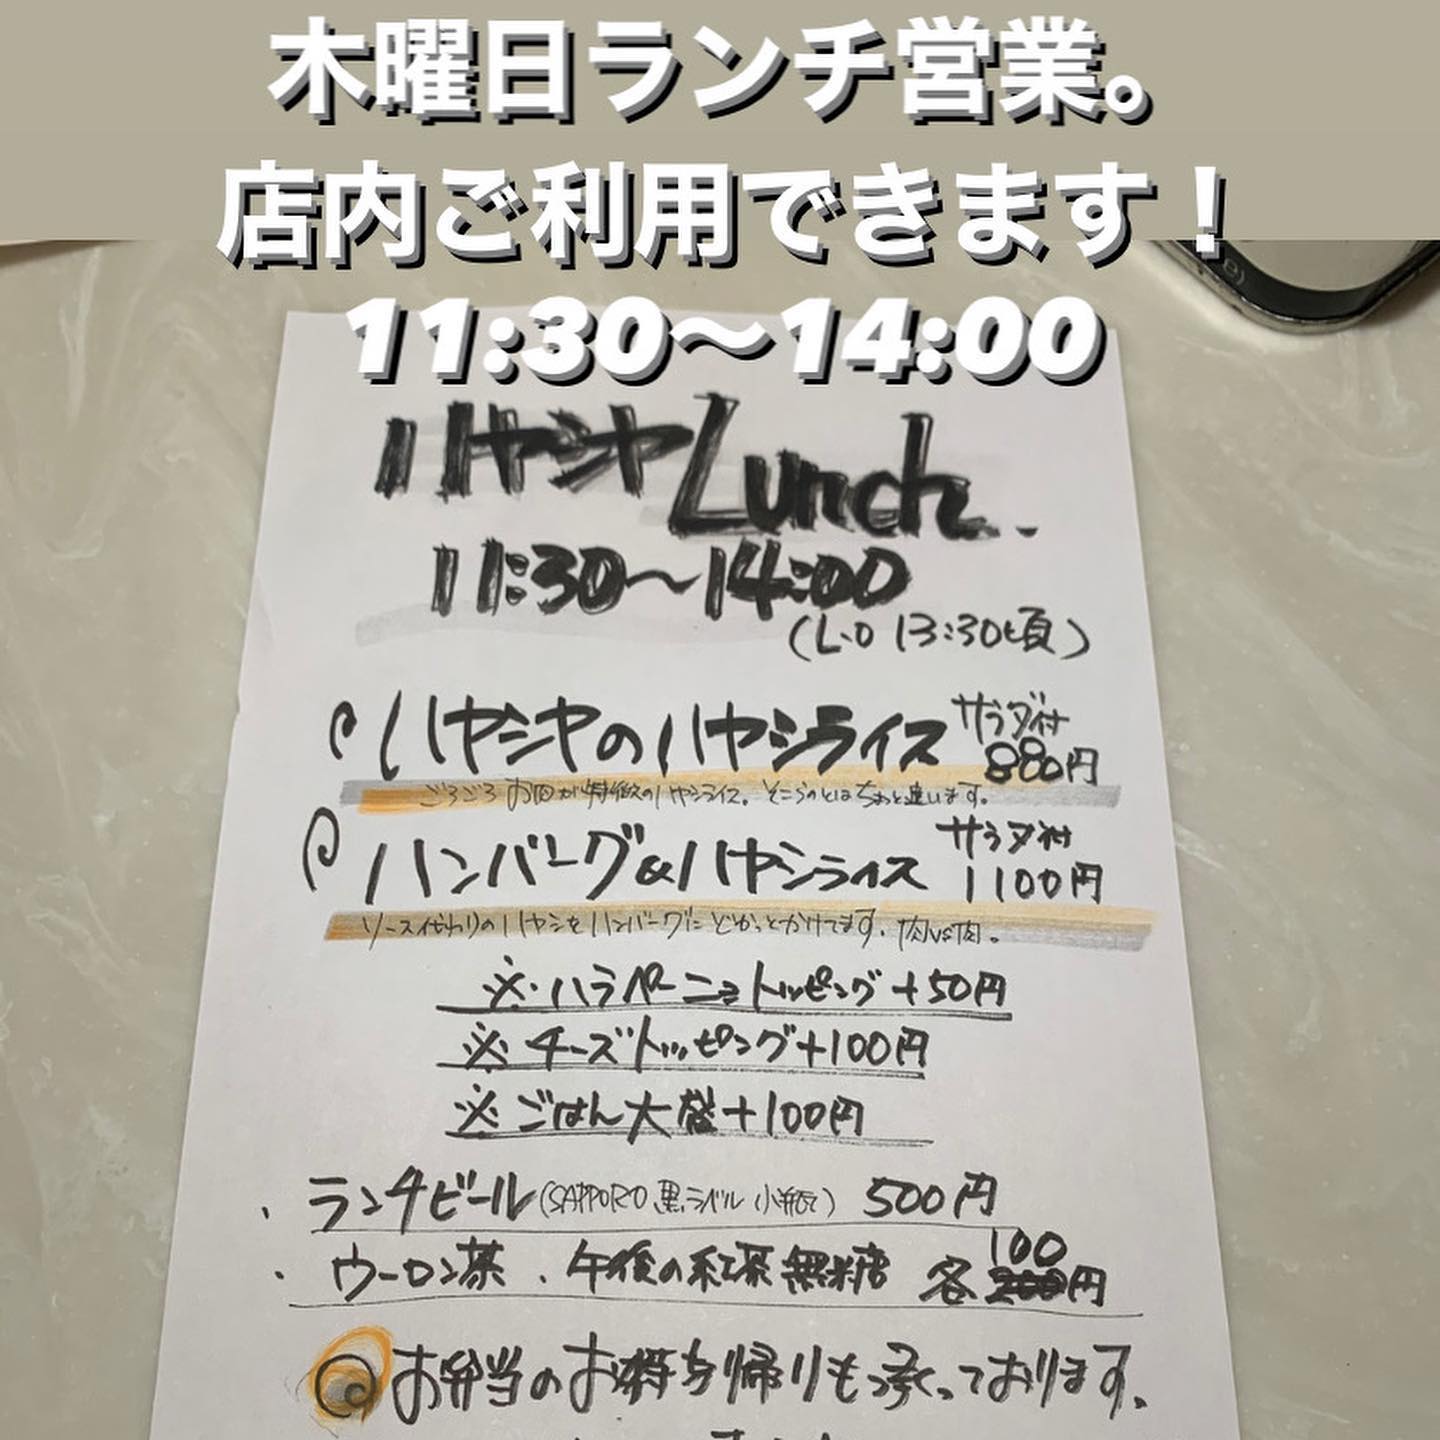 木曜日ランチ営業。
店内ご利用できます！
11:30〜14:00
ハヤシヤLunch.
11:30〜14:00
(L.O 13:30頃)
ハヤシヤのハヤシライス サラダ付 880円
ごろごろお肉が特徴のハヤシライス。そこらのとはちょっと違います。
ハンバーグ&ハヤシライス サラダ付 1100円
ソース代わりのハヤシをハンバーグにどかっとかけてます。肉vs肉。
※ハラペーニョトッピング+50円
※チーズトッピング+100円
※ごはん大盛+100円
・ランチビール(SAPPORO黒ラベル 小瓶) 500円
・ウーロン茶、午後の紅茶無糖 各100円
お弁当のお持ち帰りも承っております。